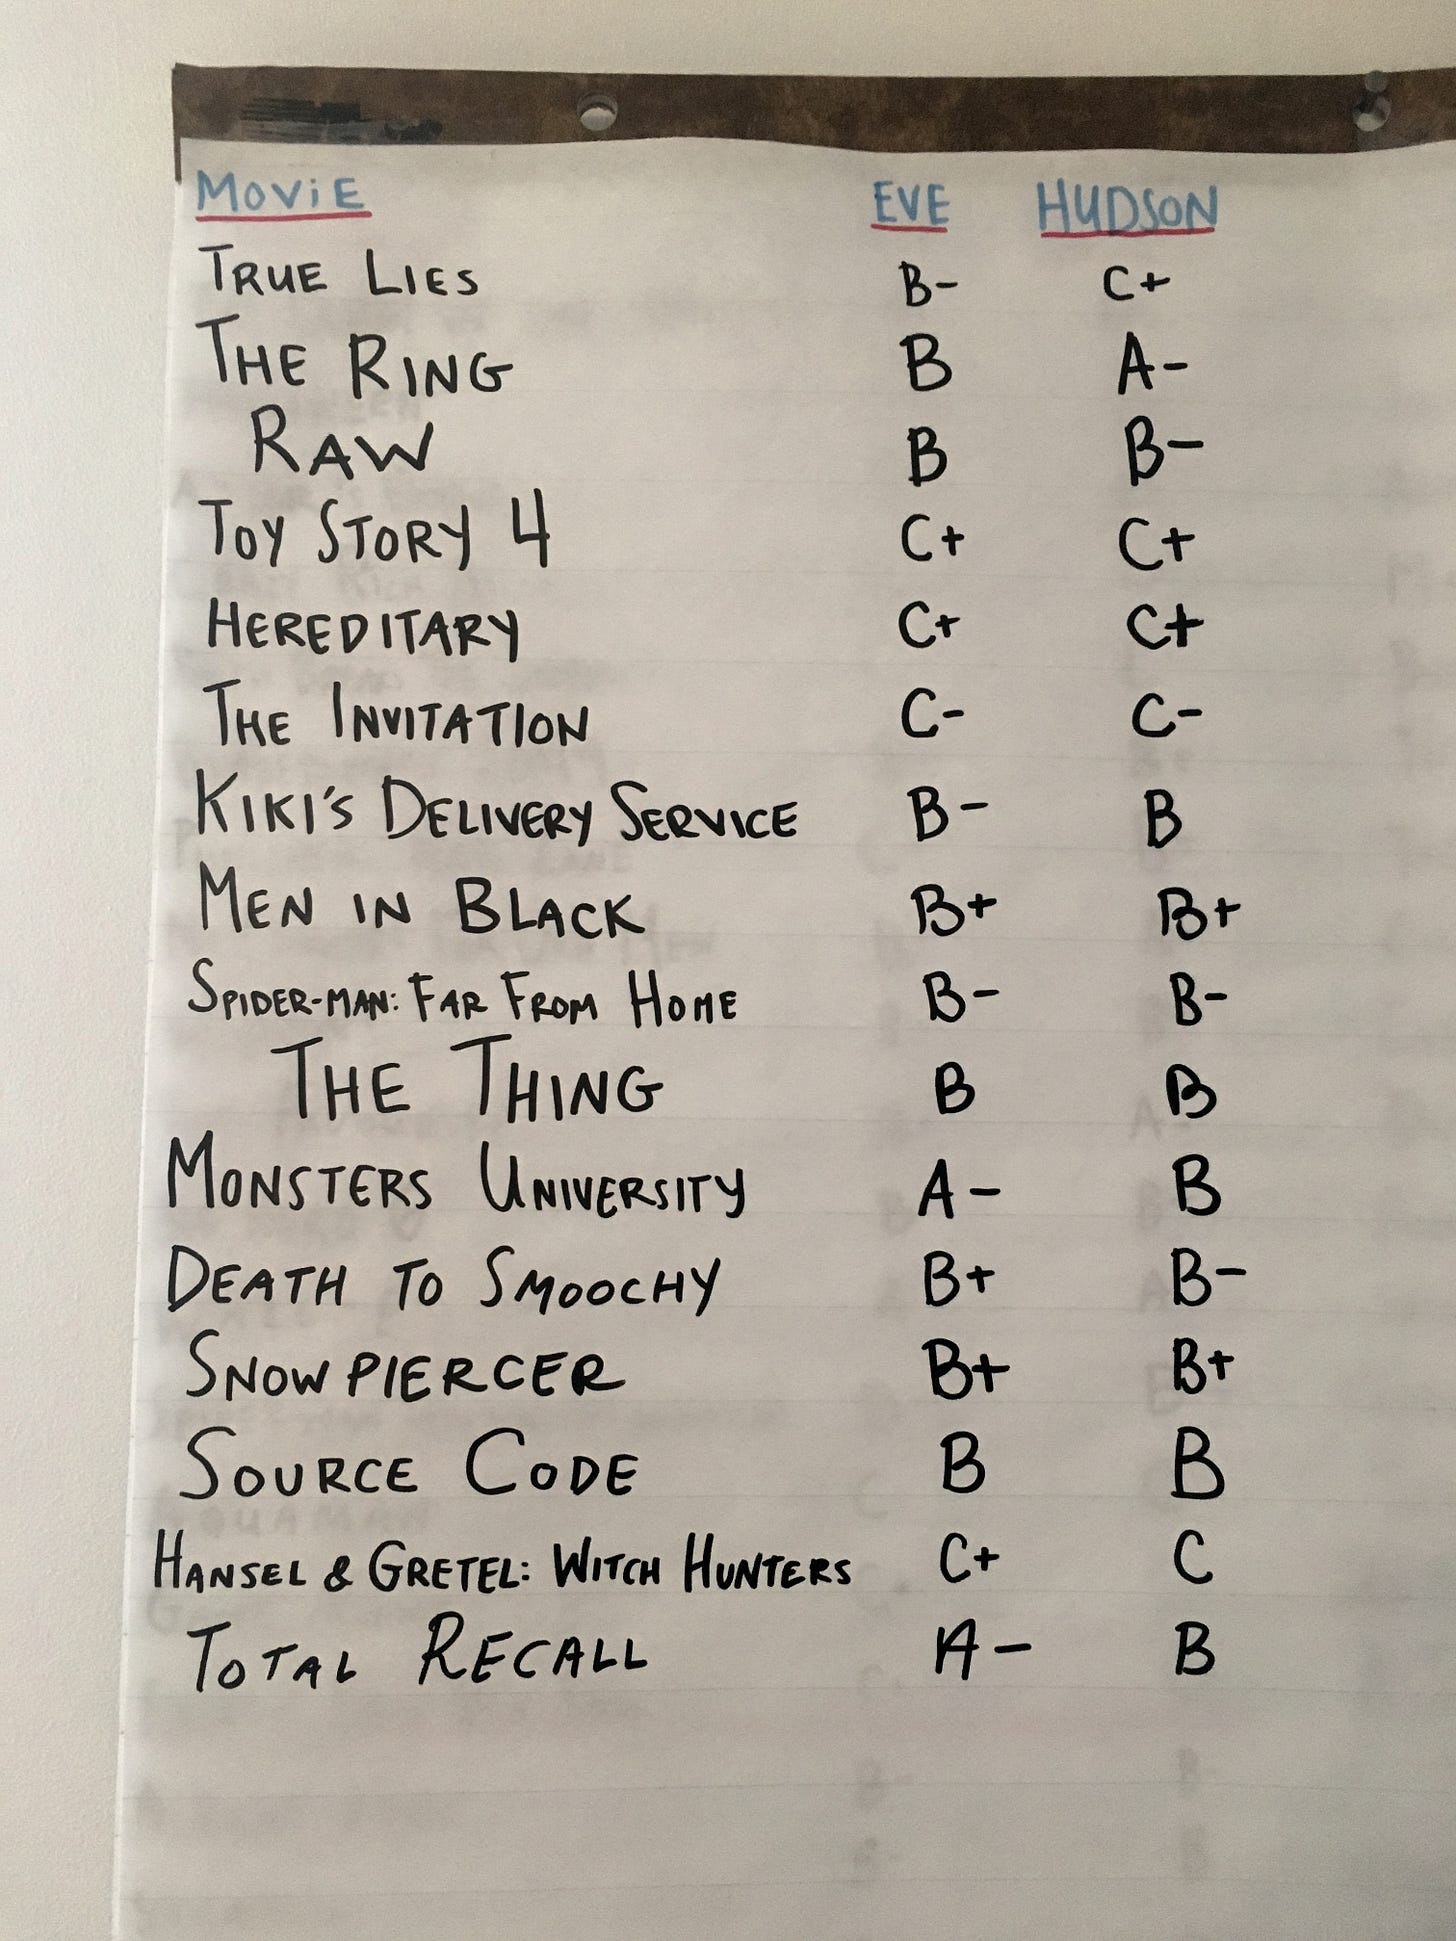 MOViE EVE HUDSON
TRUE LIES B- C+
THE RING B A-
RAW B B-
TOY STORY 4 C+ C+
HEREDITARY C+ C+
THE INVITATION C- C-
KIKI'S DELIVERY SERVICE B- B
MEN IN BLACK B+ B+
SPIDER-MAN: FAR FROM HOME B- B-
THE THING B B
MONSTERS UNIVERSITY A- B
DEATH TO SMOOCHY B+ B-
SNOWPIERCER B+ B+
SOURCE CODE B B
HANSEL & GRETEL: WITCH HUNTERS C+ C
TOTAL RECALL A- B